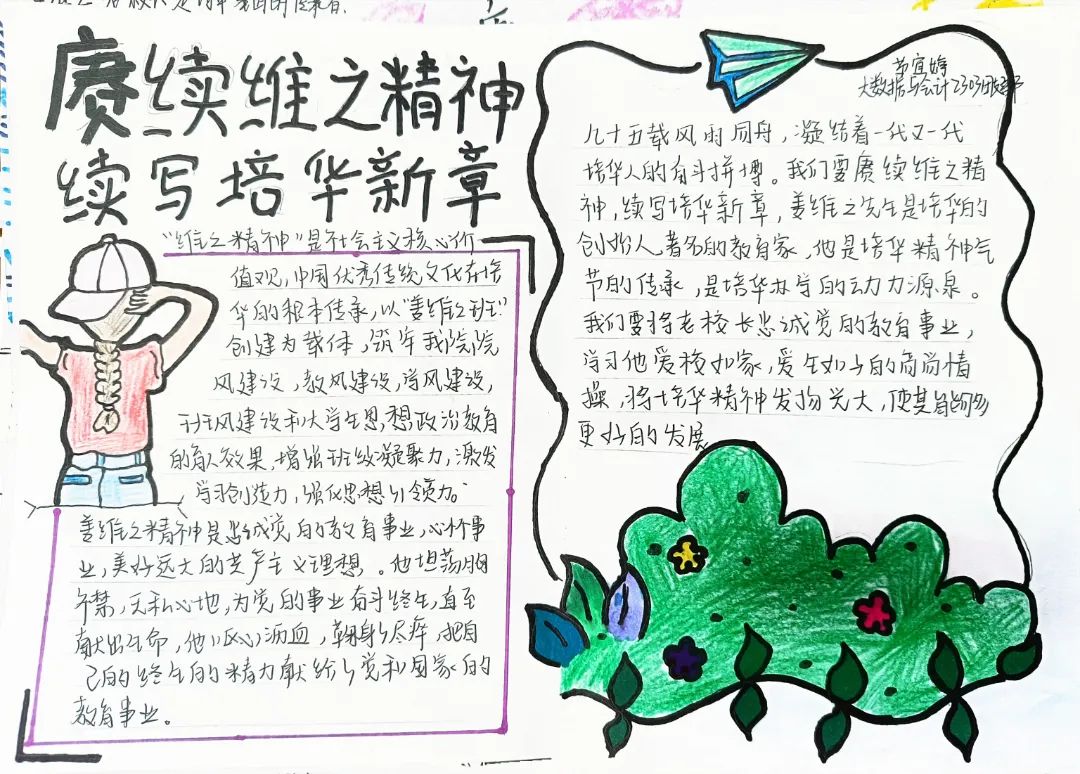 赓续维之精神
续写培华新章
"维之精神"是社会主义核心价
值观,中国优秀传统文化在培
华的根本传承,以"姜维之班"
创建为载体,筑牢我院院
风建设,教风建设,学风建设,
班风建设和大学生思想政治教育
的育人效果,增强班级凝聚力,激发
学习创造力,强化思想引领力。
姜维之精神是忠诚党的教育事业,心怀事
业,美好远大的共产主义理想。他坦荡胸
襟,无私心地,为党的事业奋斗终生,直至
献出生命,他呕心沥血,鞠身尽瘁,把自
己的终生的精力献给了党和国家的
教育事业。
宜婷
大数据与会计2303团支部
九十五载风雨同舟,凝结着一代又一代
培华人的奋斗拼搏。我们要赓续维之精
神,续写培华新章,姜维之先生是培华的
创始人著名的教育家,他是培华精神气
节的传承,是培华办学的动力源泉。
我们要将老校长忠诚党的教育事业,
学习他爱校如家,爱生如子的高尚情
操,将培华精神发扬光大,使其能够
更好的发展